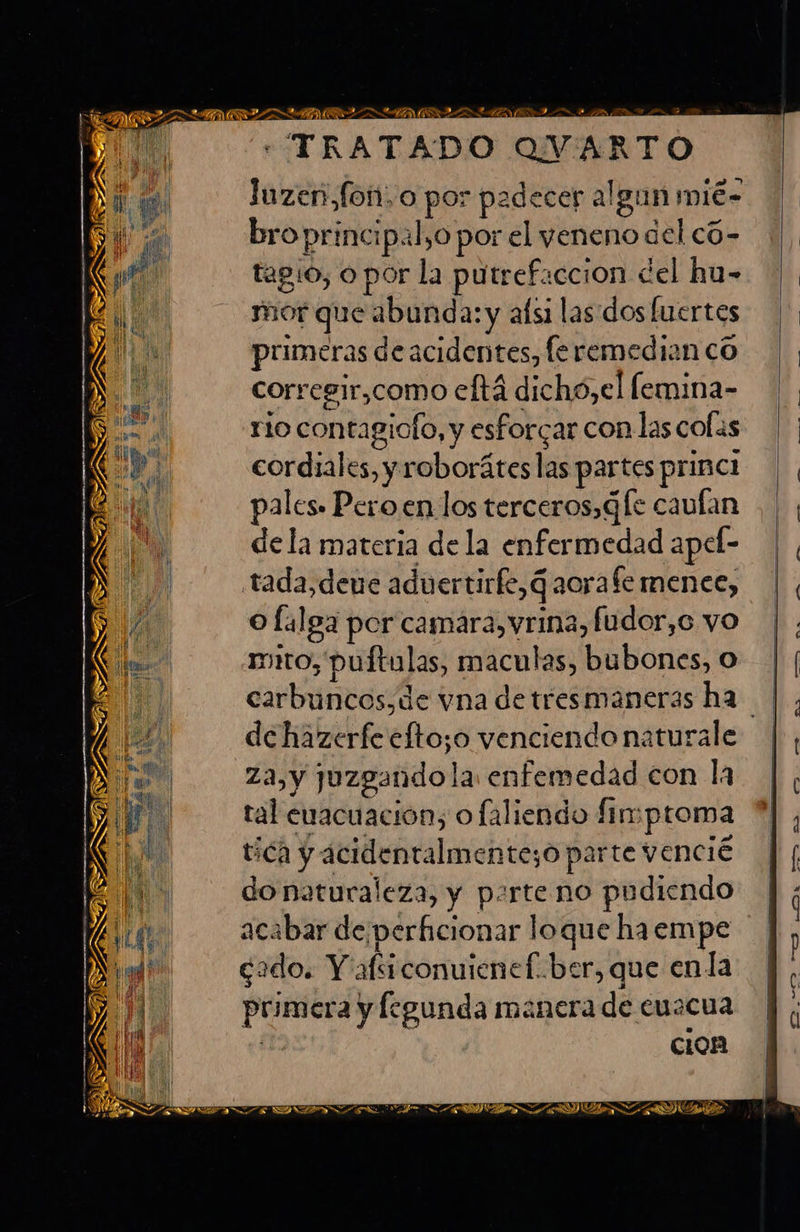 TRATADO QVARTO
luzen,ſon: o por padecer algun miẽ-
bro principal,o por el veneno del cõ-
tagio, o por la putrefaccion del hu-
mor que abunda:y aſsi las dos ſuertes
primeras de acidentes, ſe remedian cõ
corregir,como eſtá dicho,el ſemina-
rio contagioſo, y esforçar con las coſas
cordiales, y roborãtes las partes princi
pales. Pero en los terceros,q̃ ſe cauſan
de la materia de la enfermedad apeſ-
tada,deue aduertirſe,q̃ aora ſe menee,
o ſalga por camara,vrina, ſudor,o vo
mito, puſtulas, maculas, bubones, o
carbuncos,de vna de tres maneras ha
de hazerſe eſto;o venciendo naturale
za,y juzgando la enfemedad con la
tal euacuacion, o ſaliendo ſimptoma
tica y acidentalmente;o parte venciẽ
do naturaleza, y parte no pudiendo
acabar de perficionar lo que ha empe
çado. Y aſsi conuiene ſaber, que en la
primera y ſegunda manera de euacua
cion